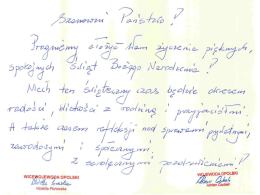 Szanowni Państwo!
Pragniemy złożyć Wam życzenia pięknych,
spokojnych Świąt Bożego Narodzenia!
Niech ten świąteczny czas będzie okresem
radości, bliskości z rodziną i przyjaciółmi,
A także czasem refleksji nad sprawami
zawodowymi i społecznymi.
z serdecznymi pozdrowieniami!
WICEWOJEWODA OPOLSKI
WOJEWODA OPOLSKI